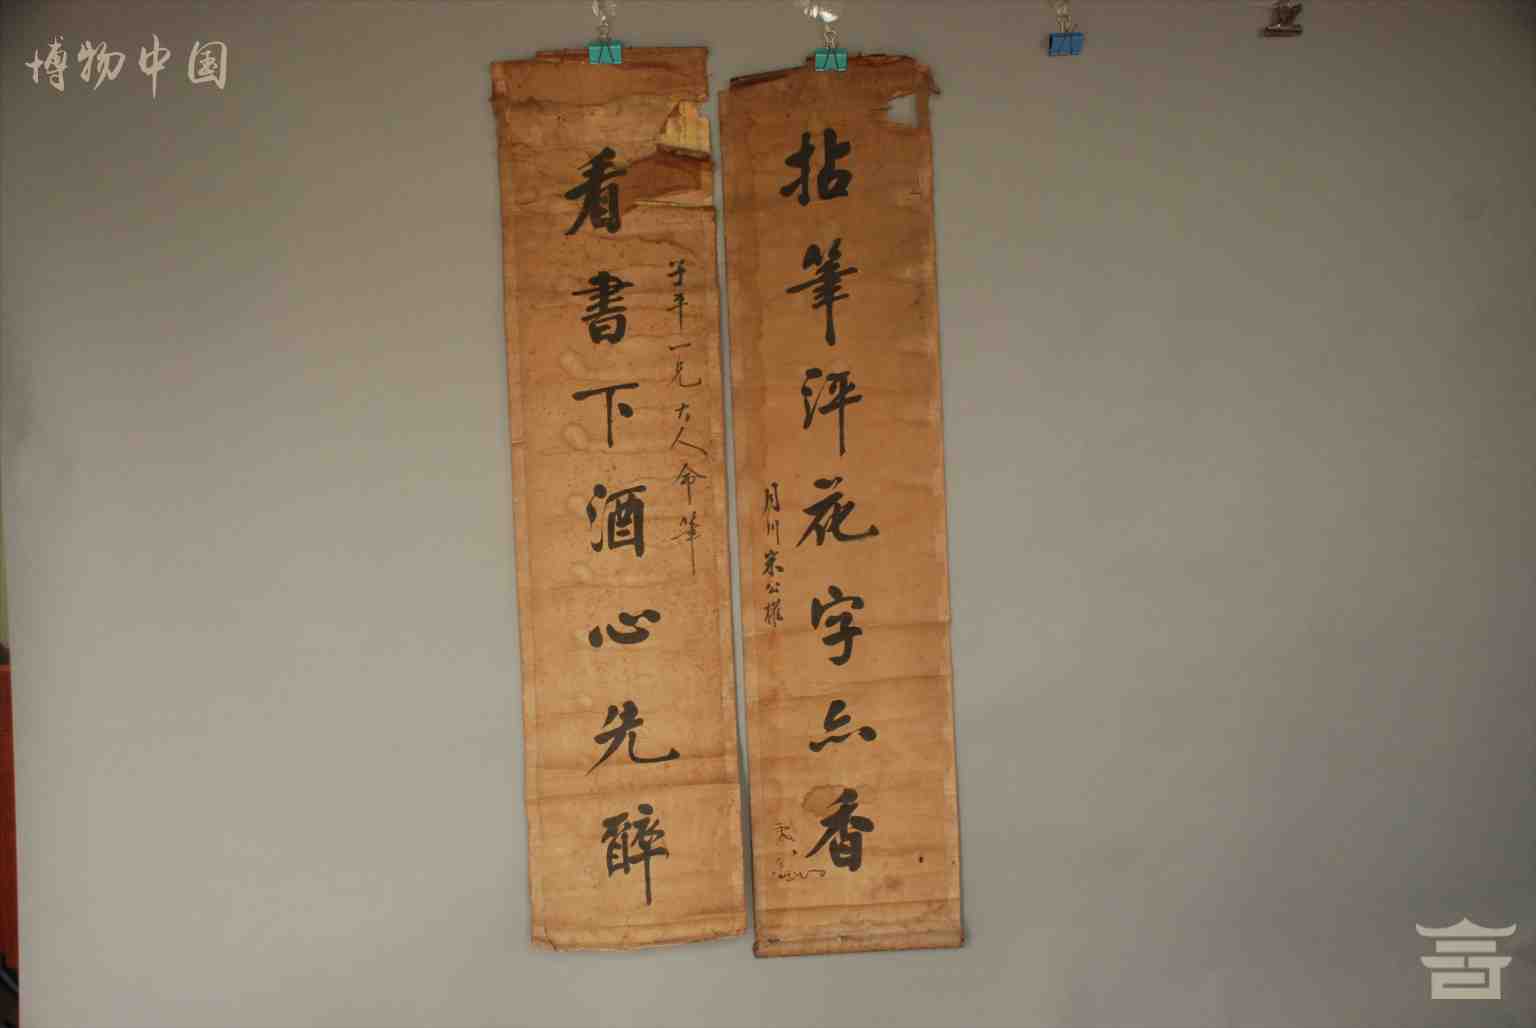 博物中国
拈筆評花字亦香
月川宋公權
一兄大人命筆
看書下酒心先醉